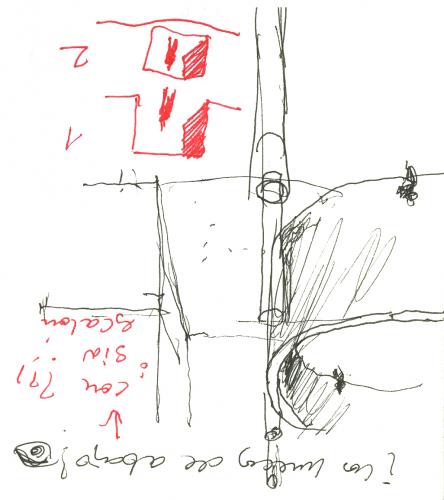 ¡los huecos de abajo!
¿con
sin
escalon
1
2